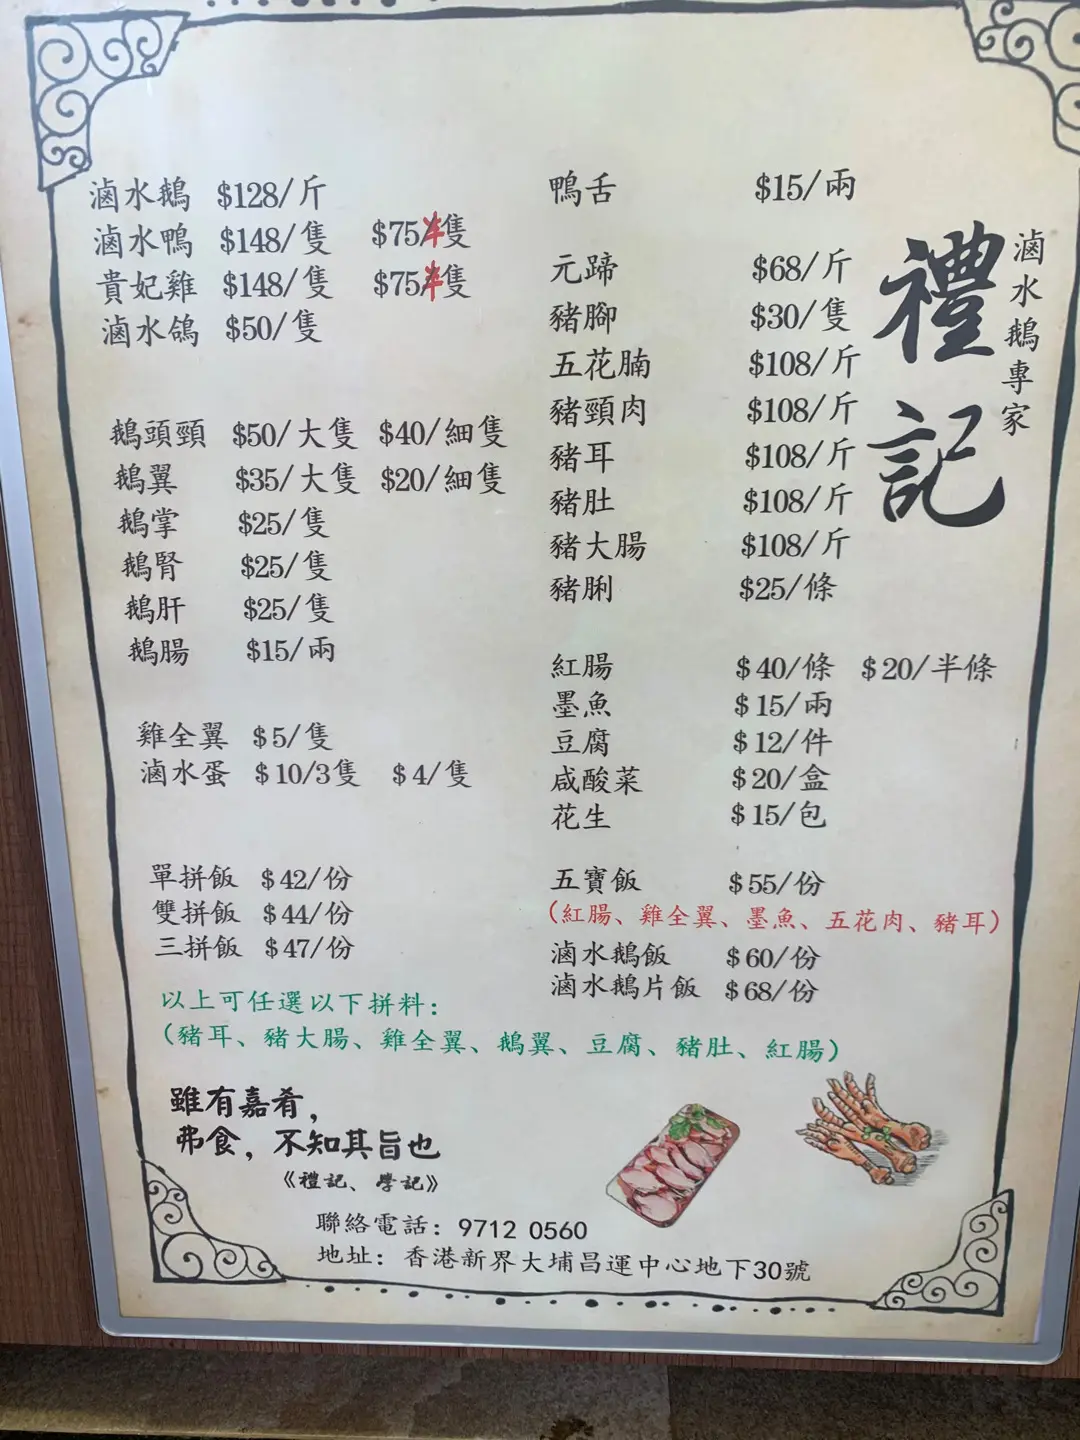 滷水鵝專家
禮記
滷水鵝 $128/斤
滷水鴨 $148/隻 $75半隻
貴妃雞 $148/隻 $75半隻
滷水鴿 $50/隻
鵝頭頸 $50/大隻 $40/細隻
鵝翼 $35/大隻 $20/細隻
鵝掌 $25/隻
鵝腎 $25/隻
鵝肝 $25/隻
鵝腸 $15/兩
雞全翼 $5/隻
滷水蛋 $10/3隻 $4/隻
單拼飯 $42/份
雙拼飯 $44/份
三拼飯 $47/份
鴨舌 $15/兩
元蹄 $68/斤
豬腳 $30/隻
五花腩 $108/斤
豬頸肉 $108/斤
豬耳 $108/斤
豬肚 $108/斤
豬大腸 $108/斤
豬脷 $25/條
紅腸 $40/條 $20/半條
墨魚 $15/兩
豆腐 $12/件
咸酸菜 $20/盒
花生 $15/包
五寶飯 $55/份
(紅腸、雞全翼、墨魚、五花肉、豬耳)
滷水鵝飯 $60/份
滷水鵝片飯 $68/份
以上可任選以下拼料:
(豬耳、豬大腸、雞全翼、鵝翼、豆腐、豬肚、紅腸)
雖有嘉肴,
弗食, 不知其旨也
《禮記、學記》
聯絡電話: 9712 0560
地址: 香港新界大埔昌運中心地下30號